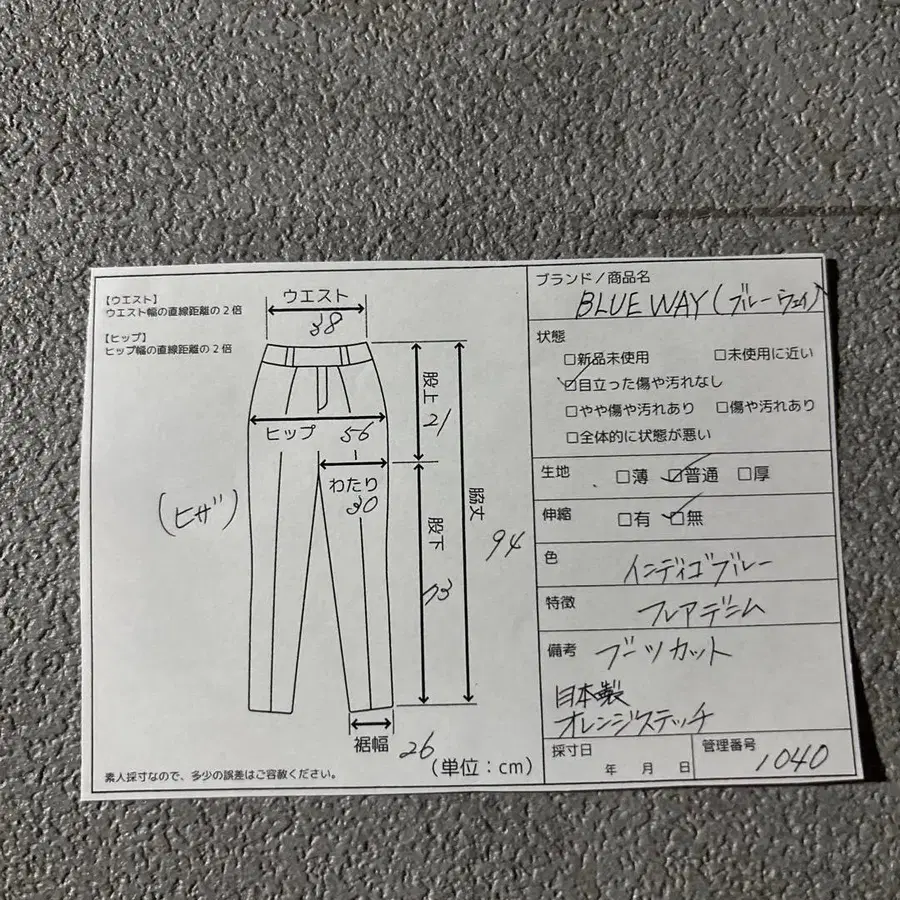 【ウエスト】
ウエスト幅の直線距離の2倍
【ヒップ】
ヒップ幅の直線距離の2倍
ウエスト
38
股上
21
ヒップ 56
わたり
30
(ヒザ)
股下
73
脇丈
94
裾幅 26
(単位:cm)
素人採寸なので、多少の誤差はご容赦ください。
ブランド/商品名
BLUE WAY(ブルーウェイ)
状態
□新品未使用 □未使用に近い
☑目立った傷や汚れなし
□やや傷や汚れあり □傷や汚れあり
□全体的に状態が悪い
生地 □薄 ☑普通 □厚
伸縮 □有 ☑無
色 インディゴブルー
特徴 フレアデニム
備考 ブーツカット
日本製
オレンジステッチ
採寸日 年 月 日
管理番号 1040